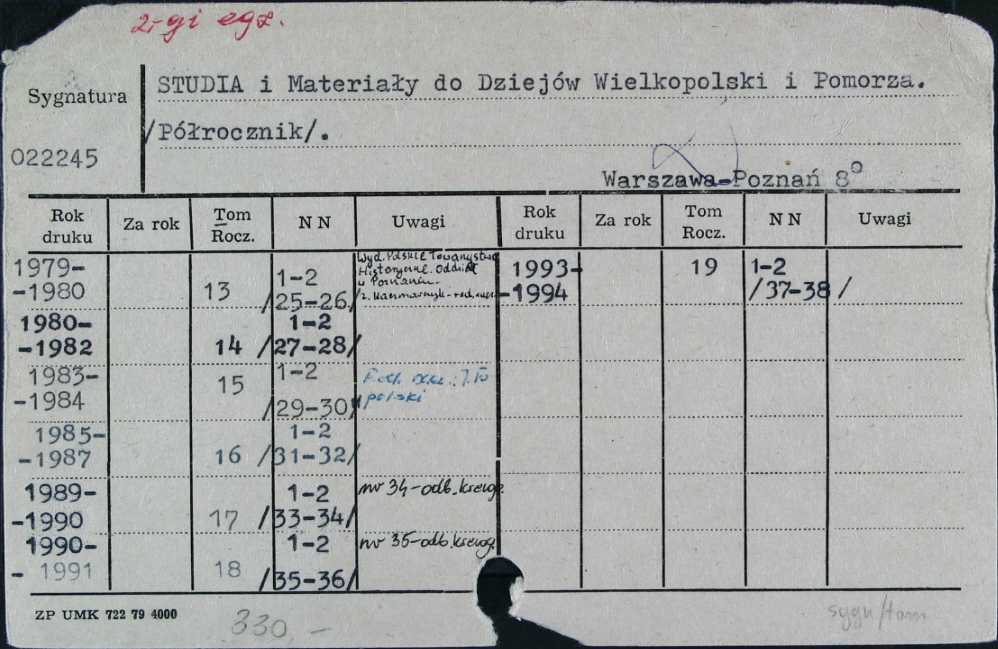 2-gi egz.
Sygnatura
STUDIA i Materiały do Dziejów Wielkopolski i Pomorza.
/Półrocznik/.
022245
Warszawa-Poznań 8°
Rok druku Za rok Tom Rocz. N N Uwagi Rok druku Za rok Tom Rocz. N N Uwagi
1979-
-1980 13 1-2 /25-26/
Wyd. Polskie Towarzystwo
Historyczne. Oddział
w Poznaniu.
1993-
-1994 19 1-2 /37-38/
1980-
-1982 14 1-2 /27-28/
1983-
-1984 15 1-2 /29-30/
1985-
-1987 16 1-2 /31-32/
1989-
-1990 17 1-2 /33-34/ nr 34-odb. kserogr.
1990-
-1991 18 1-2 /35-36/ nr 35-odb. kserogr.
ZP UMK 722 79 4000
330,-
sygn/tom